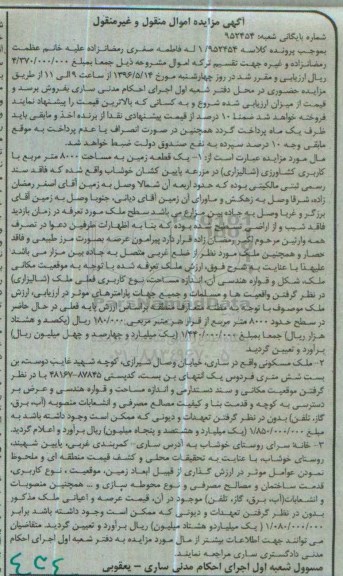 آگهی مزایده اموال منقول و غیرمنقول
شماره بایگانی شعبه: ۹۵۲۴۵۴
بموجب پرونده کلاسه ۱/۹۵۲۴۵۴ له فاطمه صغری رمضانزاده علیه خانم عظمت
رمضانزاده و غیره جهت تقسیم ترکه اموال مشروحه ذیل جمعا بمبلغ ۴/۳۷۰/۰۰۰/۰۰۰
ریال ارزیابی و مقرر شد در روز چهارشنبه مورخ ۱۳۹۶/۵/۱۴ از ساعت ۹ الی ۱۱ از طریق
مزایده حضوری در محل دفتر شعبه اول اجرای احکام مدنی ساری بفروش برسد و
قیمت از میزان ارزیابی شده شروع و به کسانی که بالاترین قیمت را پیشنهاد نمایند
فروخته خواهد شد ضمنا ۱۰ درصد از قیمت پیشنهادی نقدا از برنده اخذ و مابقی باید
ظرف یک ماه پرداخت گردد همچنین در صورت انصراف یا عدم پرداخت به موقع
مابقی وجه ۱۰ درصد سپرده به نفع صندوق دولت ضبط خواهد شد.
مال مورد مزایده عبارت است از: ۱- یک قطعه زمین به مساحت ۸۰۰۰ متر مربع با
کاربری کشاورزی (شالیزاری) در مزرعه پایین کشان خوشاب واقع شده که فاقد سند
رسمی ثبتی مالکیتی بوده که حدود اربعه آن شمالا وصل به زمین آقای اصغر رمضان
زاده، شرقا وصل به زهکش و ماورای آن زمین آقای دیانی، جنوبا وصل به زمین آقای
برزگر و غربا وصل به مزارع می باشد سطح ملک مورد تعرفه در زمان بازدید
فاقد شیب و از اراضی بوده که بنا به اظهارات طرفین دعوا در تصرف
همه وارثین مرحوم زاده قرار دارد پیرامون عرصه بصورت مرز طبیعی و فاقد
حصار و همچنین ملک مورد نظر از ضلع غربی متصل به جاده بین مزار می باشد
علیهذا با عنایت به شرح فوق، ارزش ملک تعرفه شده با توجه به موقعیت مکانی
ملک، شکل و قواره هندسی آن، اندازه مساحت، نوع کاربری فعلی ملک (شالیزاری)
در نظر گرفتن واقعیت ها و مسلمات و جمیع جهات پارامترهای موثر در ارزیابی، ارزش
ملک موصوف با توجه به براساس ارزش پایه فعلی در حال حاضر
در سطح حدود ۸۰۰۰ متر مربع از قرار هر متر مربعی ۱۸۰/۰۰۰ ریال (یکصد و هشتاد
هزار ریال) جمعا بمبلغ ۱/۴۴۰/۰۰۰/۰۰۰ (یک میلیارد و چهارصد و چهل میلیون ریال)
برآورد و تعیین گردید.
۲- ملک مسکونی واقع در ساری، خیابان وصال شیرازی، کوچه شهید عنایت دوست، بن
بست شش متری فردوس یک انتهای بن بست، کدپستی ۸۷۸۴۵-۴۸۱۶۷ با در نظر
گرفتن موقعیت مکانی و سند دسترسی و اندازه مساحت و قواره هندسی و عرض بر
دسترسی به کوچه و قدمت بنا و کیفیت مصالح مصرفی و انشعابات منصوبه (آب، برق،
گاز، تلفن) بدون در نظر گرفتن تعهدات و دیونی که ممکن است وجود داشته باشد به
مبلغ ۱/۸۵۰/۰۰۰/۰۰۰ (یک میلیارد و هشتصد و پنجاه میلیون) ریال برآورد و اعلام گردید.
۳- خانه سرای روستای خوشاب به آدرس ساری- کمربندی غربی، پایین شهیند،
روستای خوشاب، با عنایت به تحقیقات محلی و کشف قیمت منطقه ای و ملحوظ
نمودن عوامل موثر در ارزش گذاری از قبیل ابعاد زمین، موقعیت، نوع کاربری،
قدمت ساختمان و مصالح مصرفی و نوع محوطه سازی و ... همچنین منصوبات
و انشعابات (آب، برق، گاز، تلفن) موجود در آن، قیمت عرصه و اعیانی ملک مذکور
بدون در نظر گرفتن تعهدات و دیونی که ممکن است وجود داشته باشد برابر
۱/۰۸۰/۰۰۰/۰۰۰ ( یک میلیارد و هشتاد میلیون) ریال برآورد و تعیین گردید. متقاضیان
می توانند جهت اطلاعات بیشتر از مال مورد مزایده به دفتر شعبه اول اجرای احکام
مدنی دادگستری ساری مراجعه نمایند.
مسوول شعبه اول اجرای احکام مدنی ساری – یعقوبی